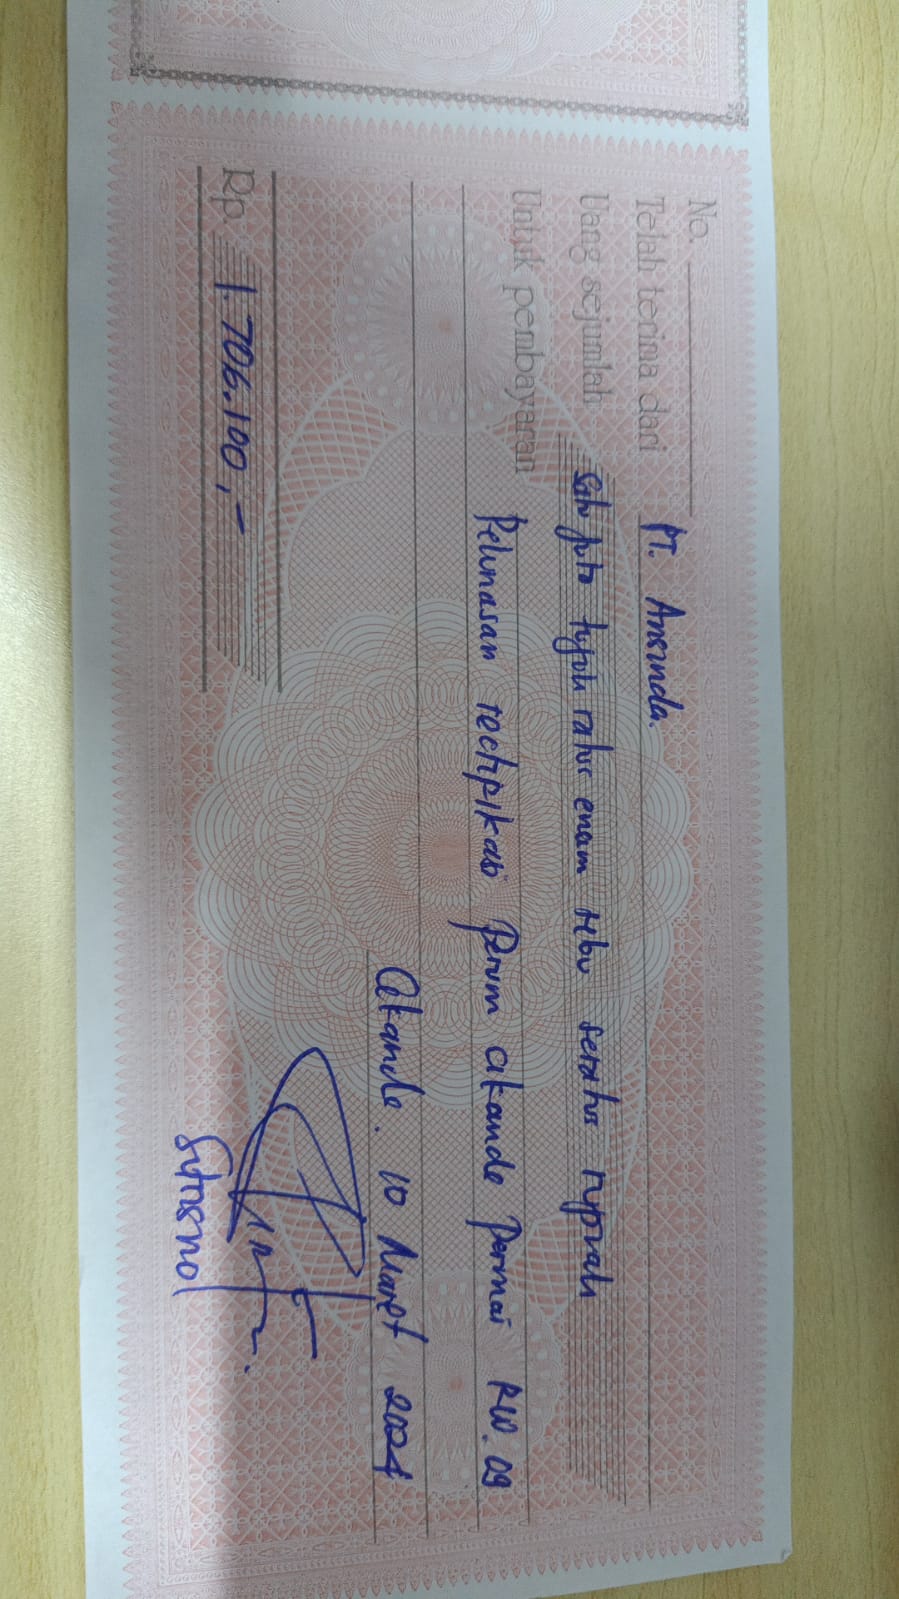 No.
Telah terima dari PT. Ansinda.
Uang sejumlah Satu juta tujuh ratus enam rebu seratus rupiah
Untuk pembayaran Pelunasan rectipikasi Perum cikande Permai RW. 09
Cikande. 10 Maret 2024
Rp. 1.706.100,-
Sutrisno